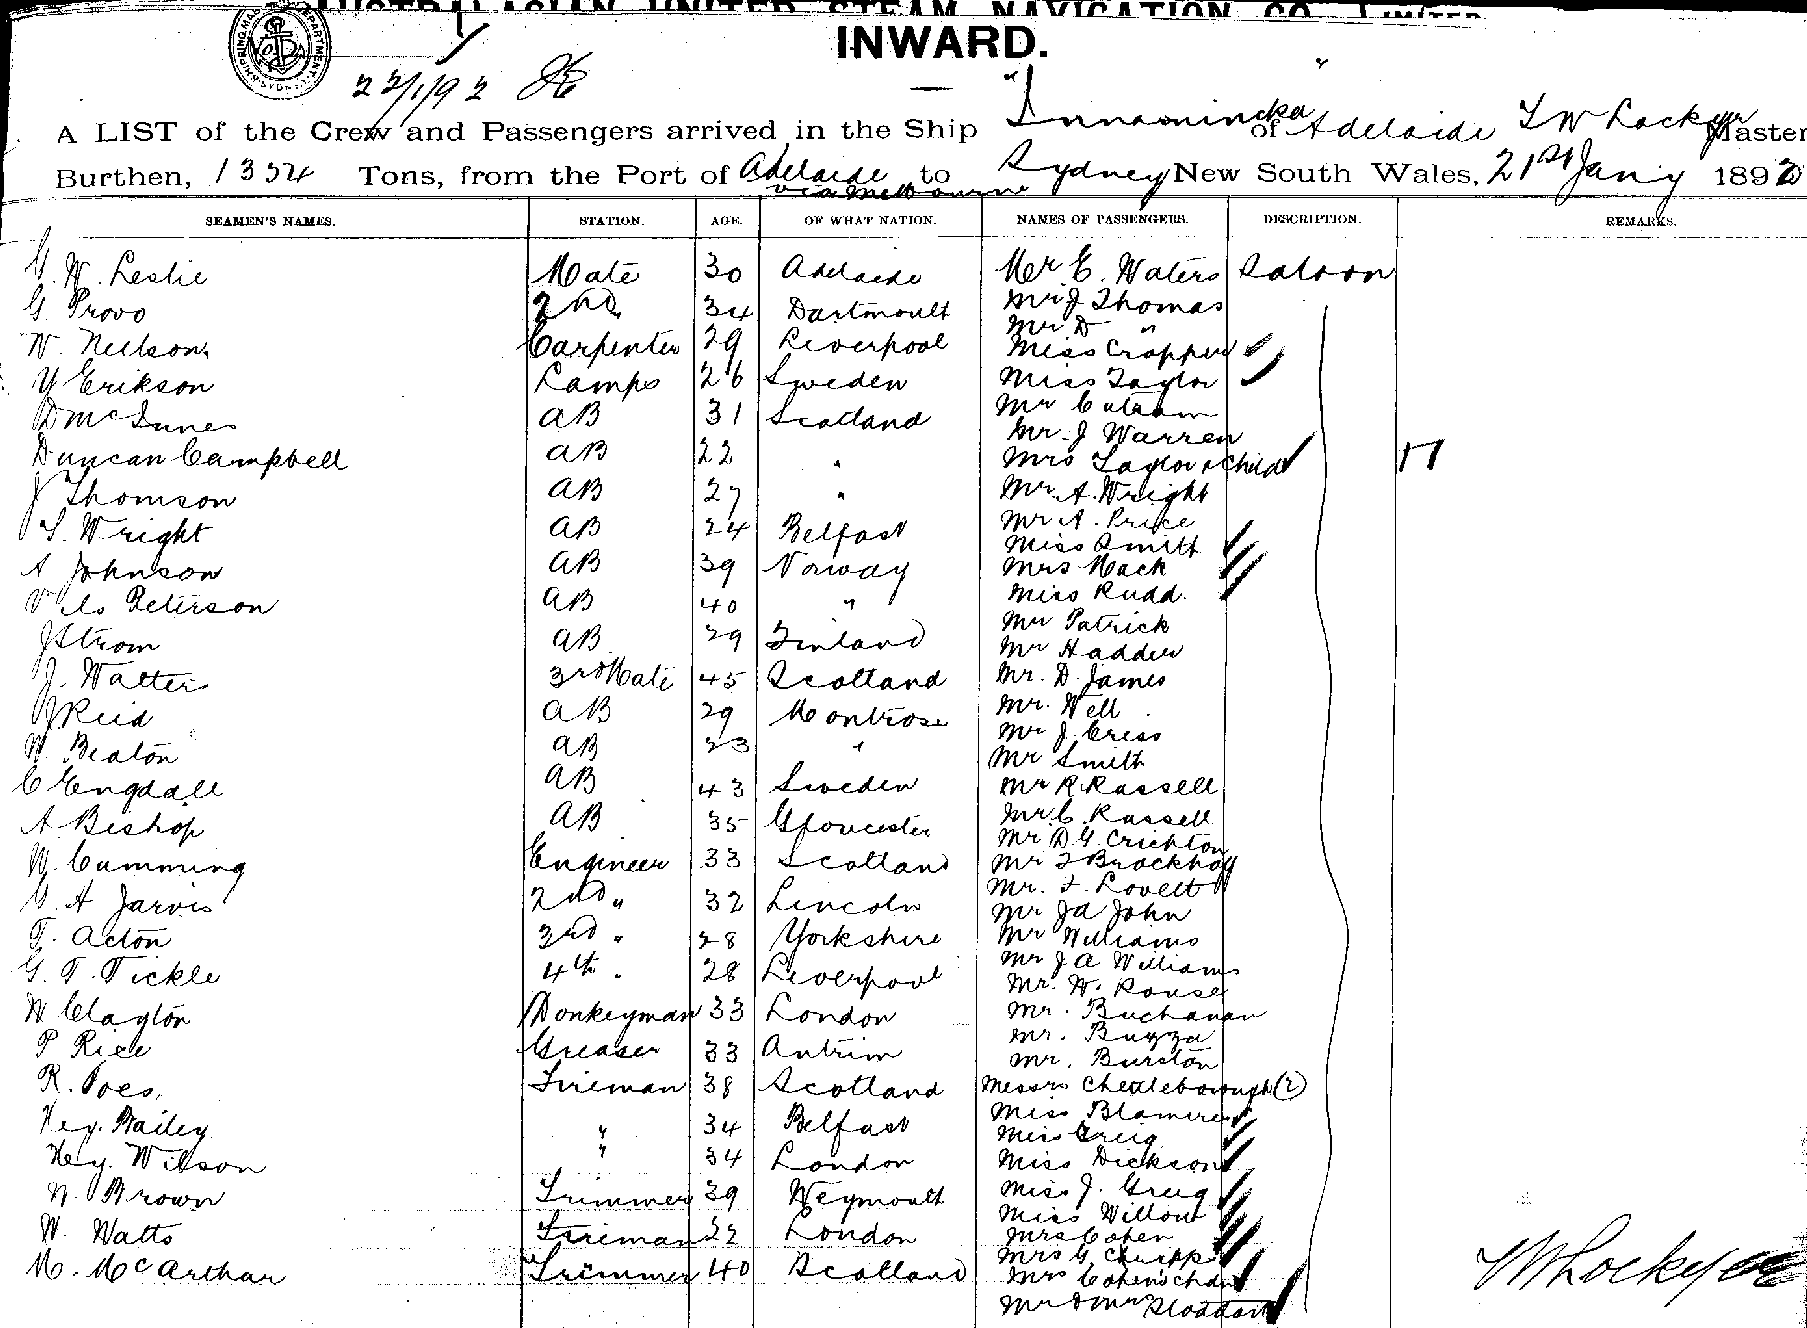 AUSTRALASIAN UNITED STEAM NAVIGATION CO. LIMITED
INWARD.
22/1/92
A LIST of the Crew and Passengers arrived in the Ship "Innamincka" of Adelaide T W Lockyer Master
Burthen, 1354 Tons, from the Port of Adelaide via Melbourne to Sydney New South Wales, 21st Jany 1892
SEAMEN'S NAMES. STATION. AGE. OF WHAT NATION. NAMES OF PASSENGERS. DESCRIPTION. REMARKS.
G. W. Leslie Mate 30 Adelaide Mr E. Waters Saloon
G. Provo 2nd 34 Dartmoutt Mr J Thomas
Mr D "
W. Neilson Carpenter 29 Liverpool Miss Cropper
Y Erikson Lamps 26 Sweden Miss Taylor
D McInnes AB 31 Scotland Mr Outram
Mr. J Warren
Duncan Campbell AB 22 " Mrs Taylor & Child 17
J Thomson AB 27 " Mr. A. Wright
Mr A. Price
S. Wright AB 24 Belfast Miss Smith
A Johnson AB 39 Norway Mrs Mack
Nils Peterson AB 40 " Miss Rudd.
Mr Patrick
J Strom AB 29 Finland Mr Hadder
J. Walter 3rd Mate 45 Scotland Mr. D. James
J Reid AB 29 Montrose Mr. Well
Mr J. Cress
W. Beaton AB 23 " Mr Smith
C Engdall AB 43 Sweden Mr R. Rassell
A Bishop AB 35 Gloucester Mr C. Rassell
Mr D G Crichton
W. Cumming Engineer 33 Scotland Mr F Brockhoff
Mr. F. Lovett
G. A Jarvis 2nd " 32 Lincoln Mr Jd John
T. Acton 3rd " 28 Yorkshire Mr Williams
Mr J A Williams
G. T. Tickle 4th " 28 Liverpool Mr. W. Rouse
W Clayton Donkeyman 33 London Mr. Buchanan
Mr. Buzza
P Rice Greaser 33 Antrim Mr. Burston
R. Poes. Fireman 38 Scotland Messrs Chettleborough (2)
Miss Blamires
Hey. Bailey " 34 Belfast Miss Greig
Hey. Wilson " 34 London Miss Dickson
N. Brown Trimmer 39 Weymoutt Miss J. Greig
Miss Willow
W. Watts Fireman 22 London Mrs Cohen
Mrs G. Chripps
M. McArthur Trimmer 40 Scotland Mrs Cohen schan
Mr & Mrs Stoddart
T W Lockyer